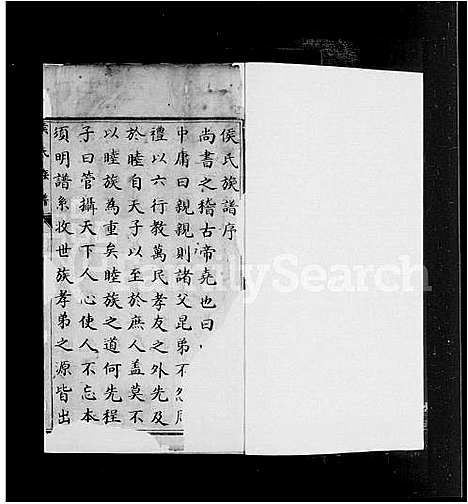 侯氏族譜序
尚書之稽古帝堯也曰
中庸曰親親則諸父昆弟不怨周
禮以六行教萬民孝友之外先及
於睦自天子以至於庶人蓋莫不
以睦族為重矣睦族之道何先程
子曰管攝天下人心使人不忘本
須明譜系收世族孝弟之源皆出
侯氏族譜
FamilySearch